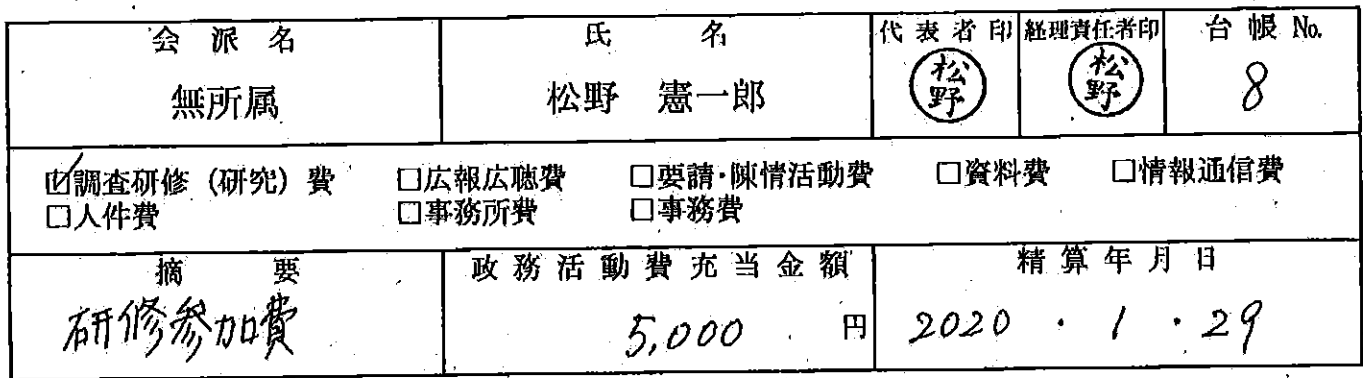 会派名 氏名 代表者印 経理責任者印 台帳No.
無所属 松野 憲一郎 松野 松野 8
☑調査研修（研究）費 □広報広聴費 □要請・陳情活動費 □資料費 □情報通信費
□人件費 □事務所費 □事務費
摘要 政務活動費充当金額 精算年月日
研修参加費 5,000 円 2020・1・29